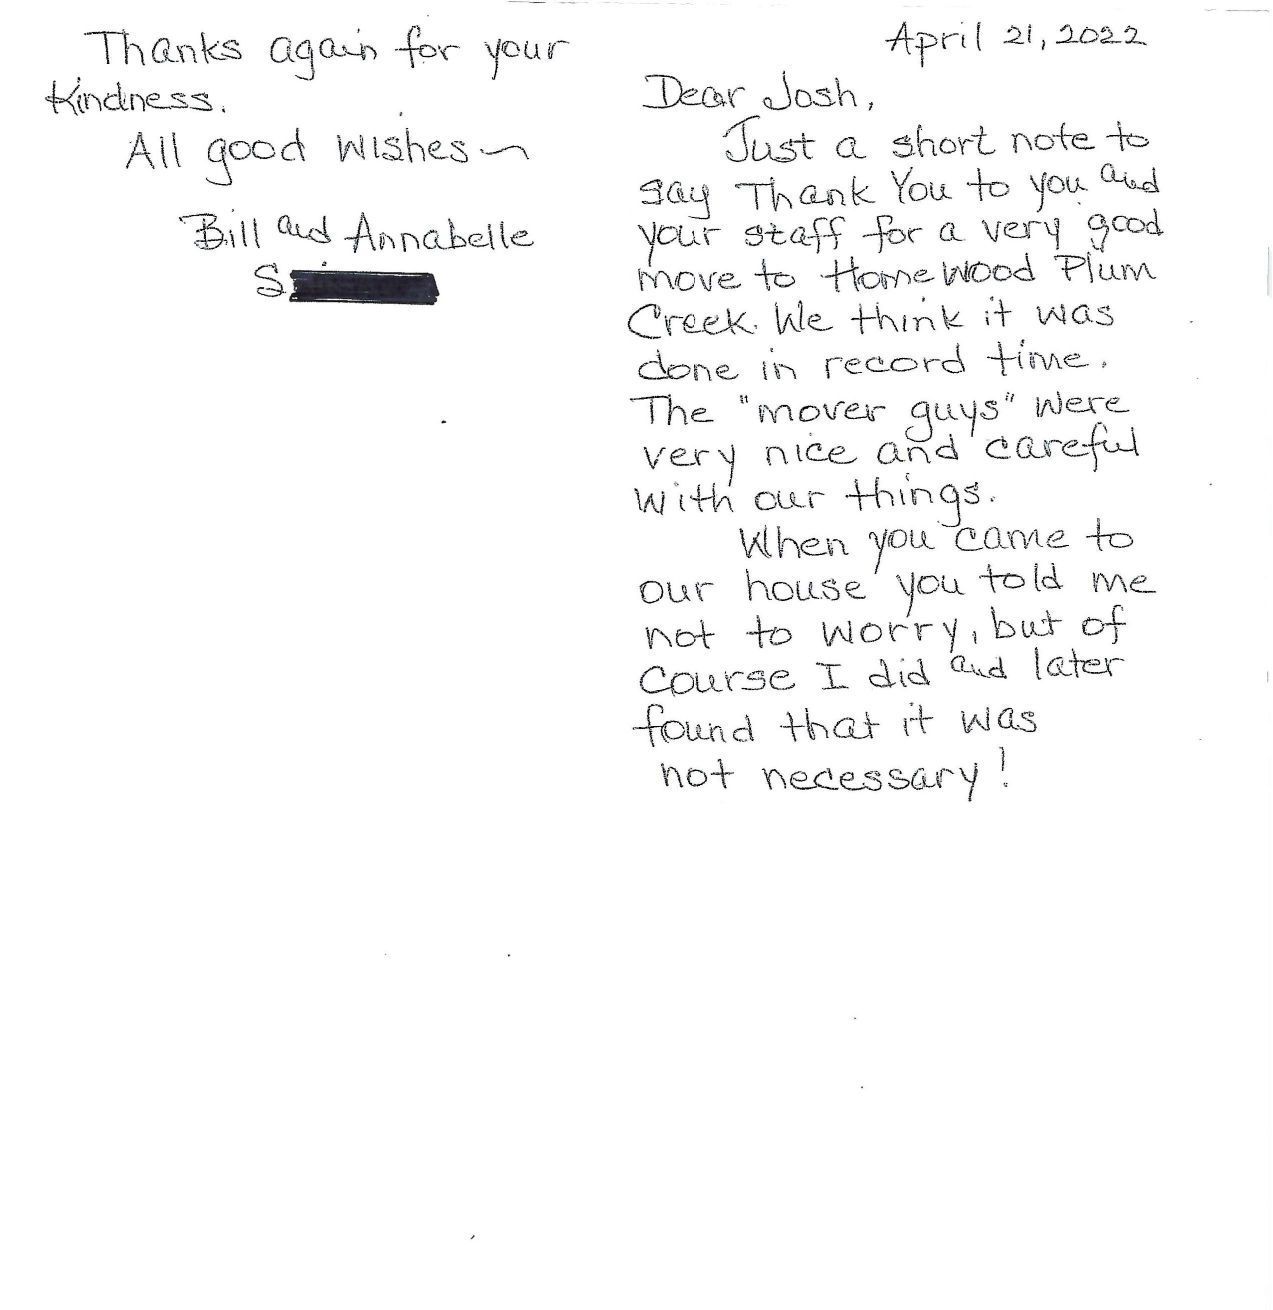 April 21, 2022
Dear Josh,
Just a short note to
say Thank You to you and
your staff for a very good
move to HomeWood Plum
Creek. We think it was
done in record time.
The "mover guys" were
very nice and careful
with our things.
When you came to
our house you told me
not to worry, but of
course I did and later
found that it was
not necessary!
Thanks again for your
Kindness.
All good wishes~
Bill and Annabelle
S